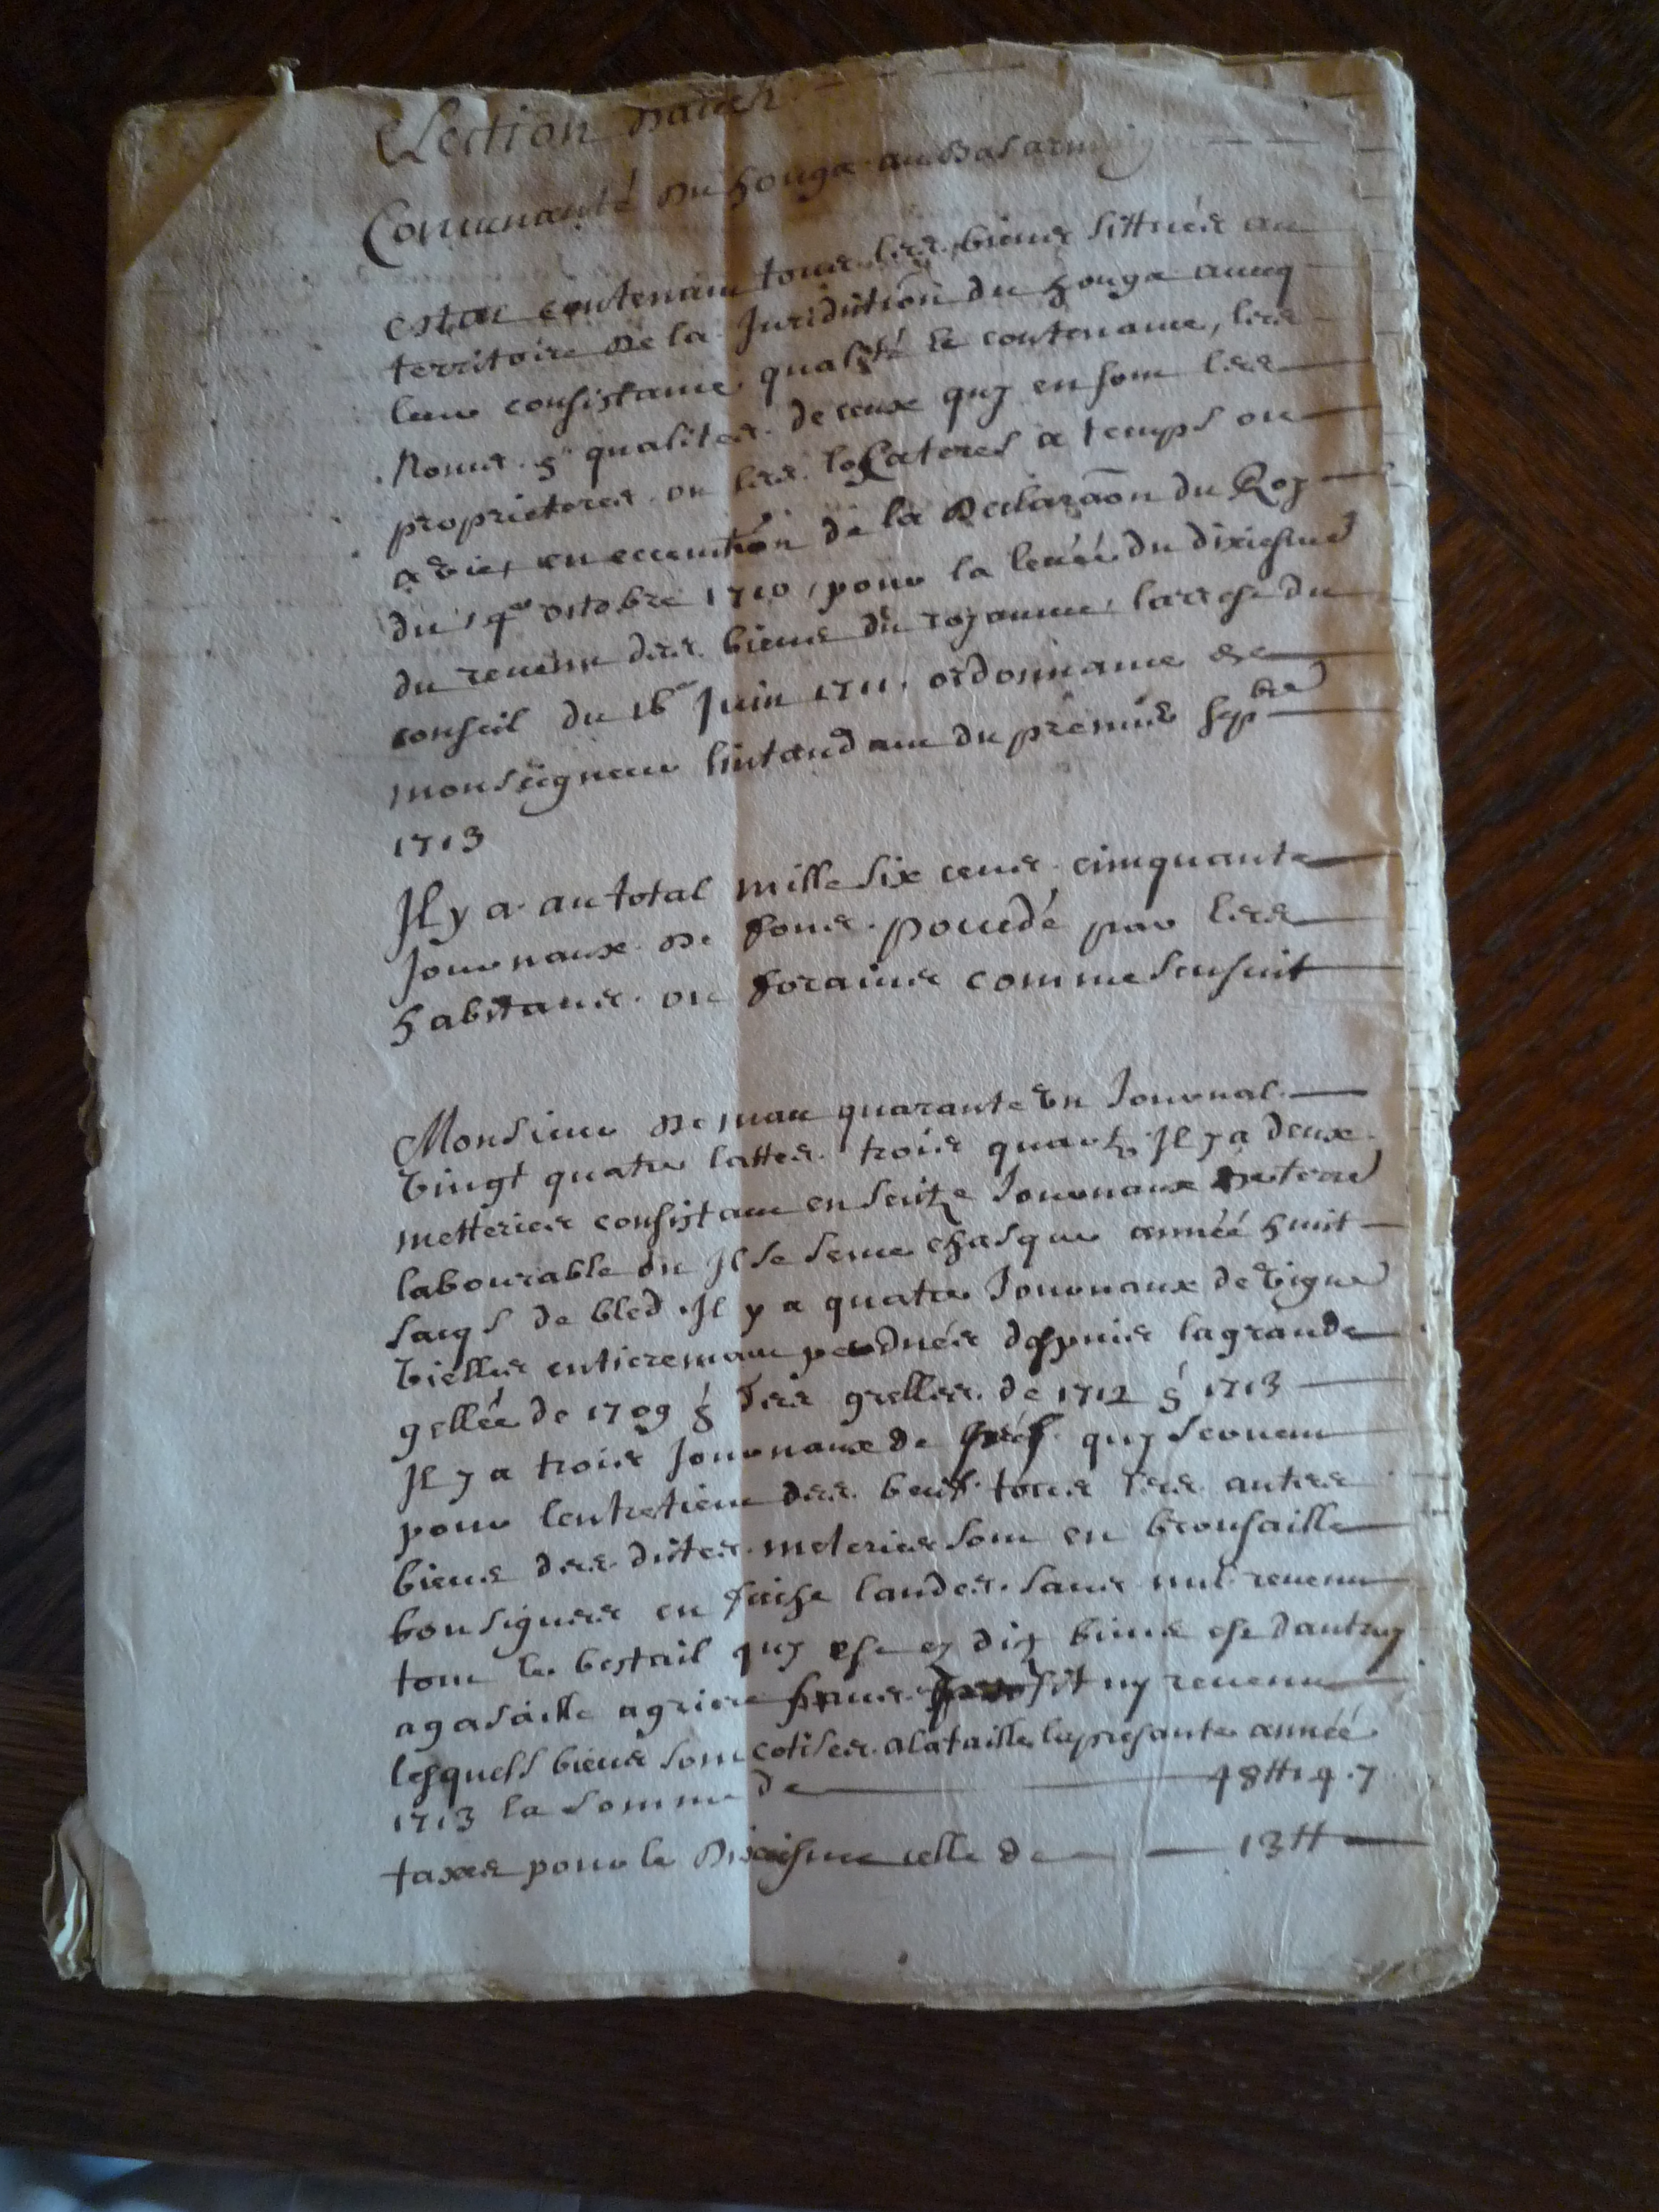 Election dauch
Comunauté du houga au Bas armaignac
Estat contenant tous les biens sittués au
territoire de la Juridiction du houga aveq
leur consistance qualité et contenance, les
Noms et qualites de ceux quy en sont les
proprieteres ou les locateres a temps ou
a vie, en execution de la Declaraôn du Roy
du 14e octobre 1710, pour la levéé du dixiesme
du revenu des biens du royaume, larrest du
conseil du 16e Juin 1711, ordonnance de
monseigneur lintandant du premier sepbre
1713
Il y a au total mille six cens cinquante
Journaux de fons poccedé par les
habitans ou forains comme sensuit
Monsieur de mau quarante un Journal
vingt quatre lattes trois quarts Il y a deux
metteries consistant en seitze Journaux de terre
labourable ou Il se seme chasque annéé huit
sacqs de bled. Il y a quatre Journaux de vigne
vielles entieremant perdués depuis la grande
gellée de 1709 et des grelles de 1712 et 1713
Il y a trois Journaux de préf quy servent
pour lentretient des beuf tous les autres
biens des dites meteries sont en brousaille
bousigues en faiche landes sans nul revenu
tout le bestail quy est ez dits biens est dautruy
a gasaille agriere sans profit ny revenu
lesquels biens sont cotises a la taille la presante annéé
1713 la somme de 48tt 14.7
taxes pour le Dixiesme celle de 13tt